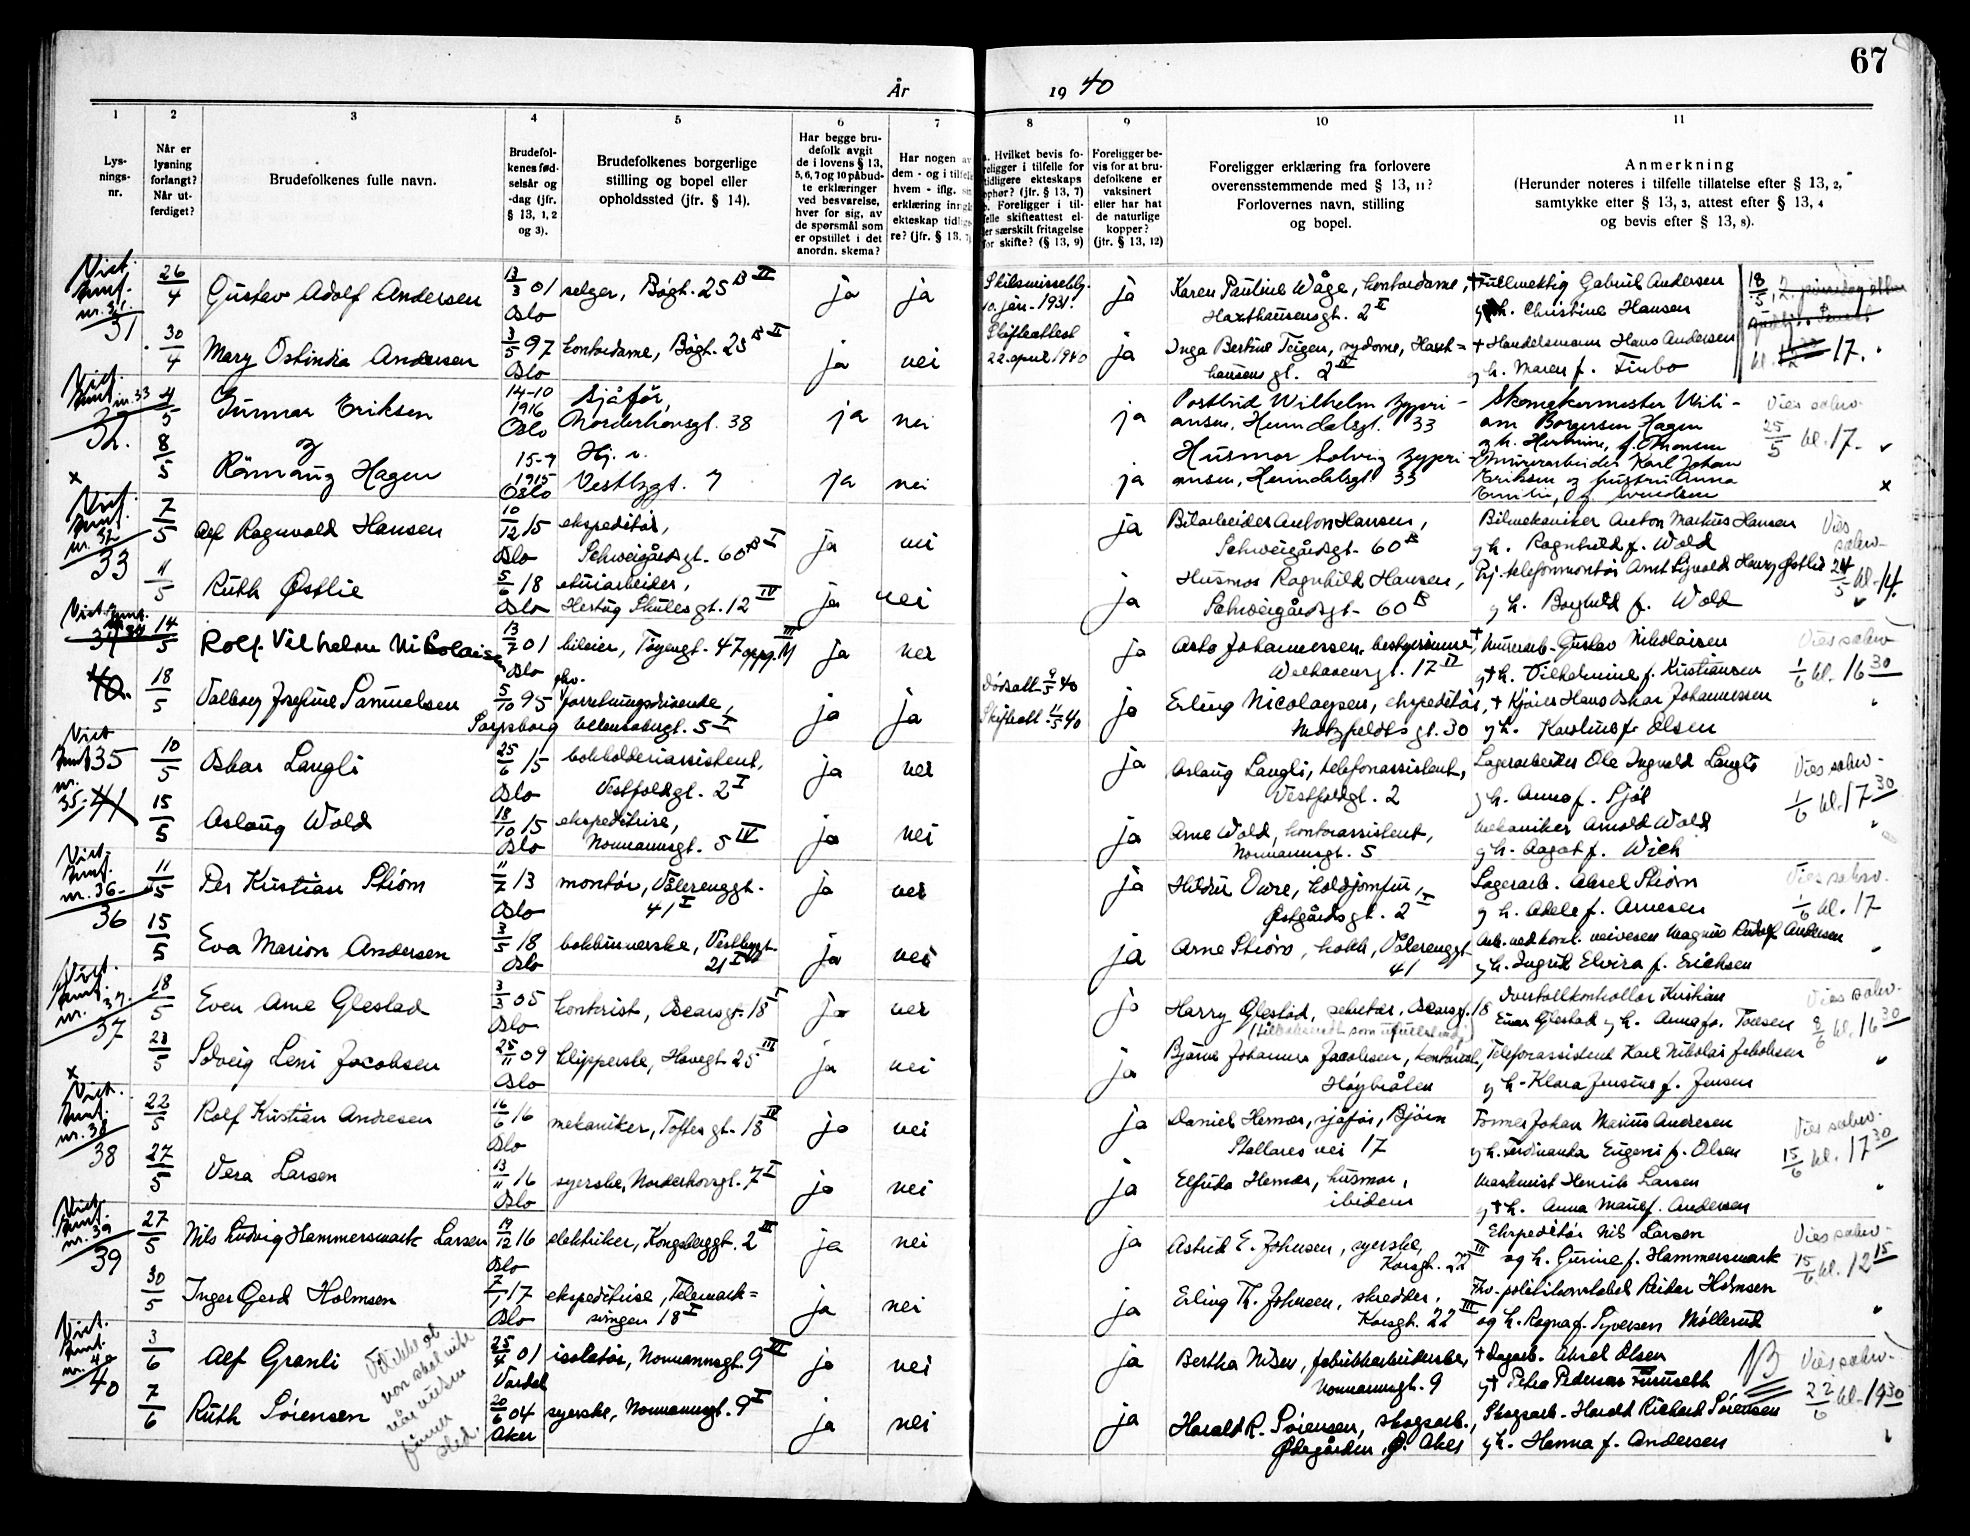 67
År 19 40
1 2 3 4 5 6 7 8 9 10 11
Lys-
nings-
nr.
Når er
lysning
forlangt?
Når ut-
ferdiget?
Brudefolkenes fulle navn.
Brudefol-
kenes fød-
selsår og
-dag (jfr.
§ 13, 1, 2
og 3).
Brudefolkenes borgerlige
stilling og bopel eller
opholdssted (jfr. § 14).
Har begge bru-
defolk avgit
de i lovens § 13,
5, 6, 7 og 10 påbud-
te erklæringer
ved besvarelse,
hver for sig, av
de spørsmål som
er opstillet i det
anordn. skema?
Har nogen av
dem - og i tilfelle
hvem - iflg.
erklæring inngått
ekteskap tidlige-
re? (jfr. § 13, 7)
Hvilket bevis fo-
religger i tilfelle for
tidligere ekteskaps
ophør? (jfr. § 13, 7)
Foreligger i til-
felle skifteattest el-
ler særskilt fritagelse
for skifte? (§ 13, 9)
Foreligger be-
vis for at bru-
defolkene er
vaksinert
eller har hat
de naturlige
kopper?
(jfr. § 13, 12)
Foreligger erklæring fra forlovere
overensstemmende med § 13, 11?
Forlovernes navn, stilling
og bopel.
Anmerkning
(Herunder noteres i tilfelle tillatelse efter § 13, 2,
samtykke efter § 13, 3, attest efter § 13, 4
og bevis efter § 13, 8).
31 26/4 Gustav Adolf Andersen 13/3 01 Oslo selger, Bøgt. 25 B II ja ja Skilsmissebev. 10. jan. 1931. ja Karen Pauline Wåge, kontordame, Haxthausensgt. 2 II † Fullmektig Gabriel Andersen og h. Christine Hansen 18/5
30/4 Mary Ostindia Andersen 3/5 97 Oslo kontordame, Bøgt. 25 B II ja nei Skifteattest 22. april 1940 ja Inga Bertine Teigen, sydame, Haxt= hausens gt. 2 II † Handelsmann Hans Andersen og h. Maren f. Finbo kl. 17.
32. 4/5 Gunnar Eriksen 14-10 1916 Oslo Sjåfør, Norderhovsgt. 38 ja nei ja Postbud Wilhelm Zypri- ansen, Heimdalsgt. 33 Skomakermester Willi- am Borgersen Hagen og h. Hermine, f. Thomsen Vies selv. 25/5 kl. 17.
og
8/5 Rannaug Hagen 15-7 1915 Oslo Hj. v. Vestbygt. 7 ja nei ja Husmor Solveig Zypri- ansen, Heimdalsgt 33 Murerarbeider Karl Johan Eriksen og hustru Anna
33 7/5 Alf Ragnvald Hansen 10/12 15 Oslo ekspeditør, Schweigårdsgt. 60 B I ja nei ja Bilarbeider Anton Hansen, Schweigårdsgt. 60 B Bilmekaniker Anton Markus Hansen og h. Ragnhild f. Wold Vies selv.
11/5 Ruth Østlie 5/6 18 Oslo etuiarbeider, Hertug Skules gt. 12 IV ja nei ja Husmor Ragnhild Hansen, Schweigårdsgt. 60 B Prj. telefonmontør Arnt Sigvald Henry Østlie og h. Borghild f. Wold 24/5 kl. 14.
34 14/5 Rolf Vilhelm Nikolaisen 13/7 01 Oslo bileier, Tøyengt. 47 oppg. M III ja nei ja Asta Johannessen, bestyrerinne, Welhavensgt. 17 II † Murerarb. Gustav Nikolaisen og † h. Vilhelmine f. Kristiansen Vies selv 1/6 kl. 16 30
18/5 Valborg Josefine Samuelsen 5/10 95 Sarpsborg fhv. forretningsdrivende, Wellensborgt. 5 I ja ja Dødsatt. 9/5 40 Skifteatt. 11/5 40 ja Erling Nicolaysen, ekspeditør, Motzfeldts gt. 30 † Kjører Hans Oskar Johannessen og h. Karoline f. Olsen
35 10/5 Oskar Langli 25/6 15 Oslo bokholderiassistent, Vestfoldgt. 2 I ja nei ja Aslaug Langli, telefonassistent, Vestfoldgt. 2 Lagerarbeider Ole Ingvald Langli og h. Anna f. Sjøl Vies selv. 1/6 kl. 17 30
15/5 Aslaug Wold 18/10 15 Oslo ekspeditrise, Normannsgt. 5 IV ja nei ja Arne Wold, kontorassistent, Normannsgt. 5 Mekaniker Arnold Wold og h. Aagot f. Wich
36 11/5 Per Kristian Strøm 11/7 13 Oslo montør, Vålerenggt. 41 I ja nei ja Hildur Owre, koldjomfru, Østgårds gt. 2 I Lagerarb. Aksel Strøm og h. Adele f. Arnesen Vies selv. 1/6 kl. 17
15/5 Eva Marion Andersen 3/5 18 Oslo bokbinnerske, Vestbygt. 21 I ja nei ja Arne Strøm, kokk, Vålerenggt 41 Arb. ved kom. veivesen Magnus Rudolf Andersen og h. Ingrid Elvira f. Erichsen
37 18/5 Even Arne Glestad 3/3 05 Oslo kontorist, Oscarsgt. 18 I ja nei ja Harry Glestad, sekretær, Oscarsgt. 18 Overtollkontrollør Kristian Einar Glestad og h. Anna f. Toresen Vies selv. 8/6 kl. 16 30
23/5 Solveig Leni Jacobsen 25/11 09 Oslo klipperske, Havegt 25 III ja nei ja Bjarne Johannes Jacobsen, kontorist, Høybråten Telefonassistent Karl Nikolai Jakobsen og h. Klara Jensine f. Jensen
38 22/5 Rolf Kristian Andresen 16/6 16 Oslo mekaniker, Toftes gt. 18 IV ja nei ja Daniel Hernes, sjåfør, Bjørn Stallares vei 17 Former Johan Marius Andresen og h. Ferdinanda Eugeni f. Olsen Vies selv. 15/6 kl. 17 30
27/5 Vera Larsen 13/11 16 Oslo syerske, Norderhovsgt. 7 I ja nei ja Elfrida Hernes, husmor, ibidem Maskinist Henrik Larsen og † h. Anna Marie f. Andersen
39 27/5 Nils Ludvig Hammersmark Larsen 19/12 16 Oslo elektriker, Kongsberggt. 2 III ja nei ja Astrid E. Johnsen, syerske, Korsgt. 22 III Ekspeditør Nils Larsen og h. Gurine f. Hammersmark Vies selv. 15/6 kl. 12 15
30/5 Inger Gerd Holmsen 7/1 17 Oslo ekspeditrise, Telemark= svingen 18 I ja nei ja Erling Th. Johnsen, skredder, Korsgt. 22 III Fhv. politikonstabel Reidar Holmsen og h. Ragna f. Syversen Møllerud
40 3/6 Alf Granli 25/4 01 Vardal isolatør, Normannsgt. 9 III ja nei ja Bertha Nilsen, fabrikkarbeiderske, Normannsgt. 9 † Dagarb. Aksel Olsen og † Petra Pedersen Furuseth NB Vies selv. 22/6 kl. 19 30
7/6 Ruth Sørensen 20/6 04 Aker syerske, Normannsgt. 9 I ja nei ja Harald R. Sørensen, skogsarb., Ødegården, Ø. Aker Skogsarb. Harald Richard Sørensen og h. Hanna f. Andersen